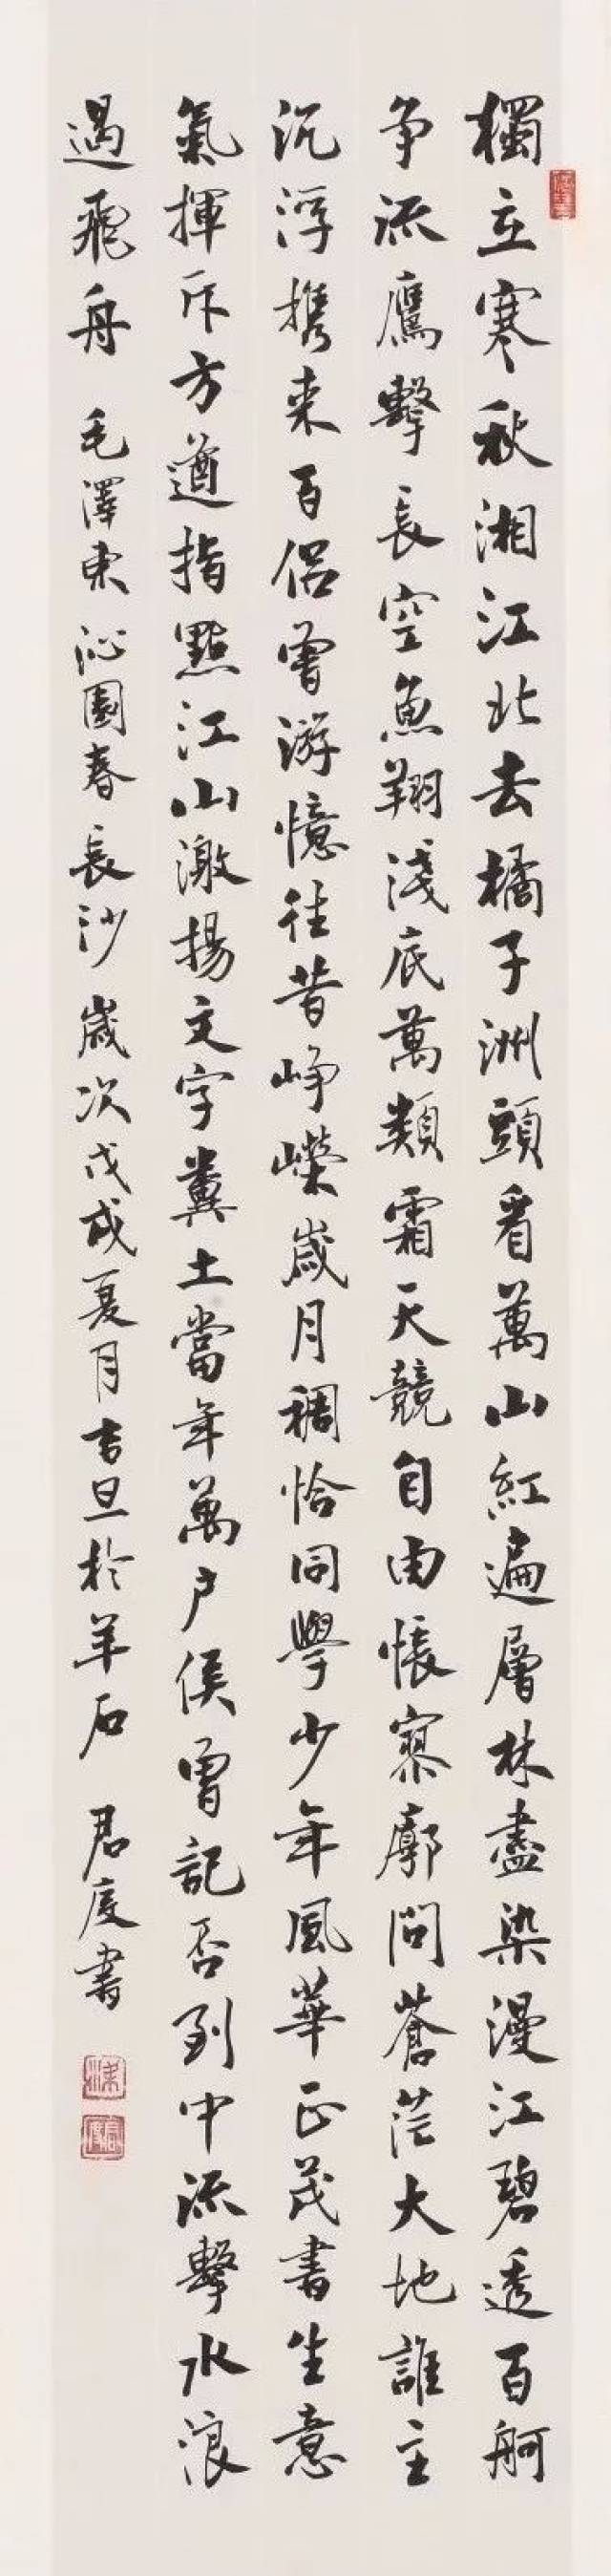 獨立寒秋湘江北去橘子洲頭看萬山紅遍層林盡染漫江碧透百舸
争流鷹擊長空魚翔淺底萬類霜天競自由悵寥廓問蒼茫大地誰主
沉浮携来百侣曾游憶往昔崢嶸歲月稠恰同學少年風華正茂書生意
氣揮斥方遒指點江山激揚文字糞土當年萬户侯曾記否到中流擊水浪
遏飛舟 毛澤東沁園春長沙 歲次戊戌夏月吉旦於羊石 君度書